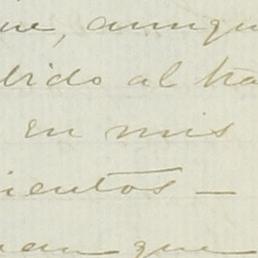 ue, aunqu
bido al tra
en mis
ientos —
uan que